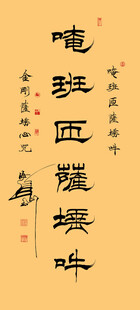 唵班匝薩埵吽
唵班匝薩埵吽
金剛薩埵心咒